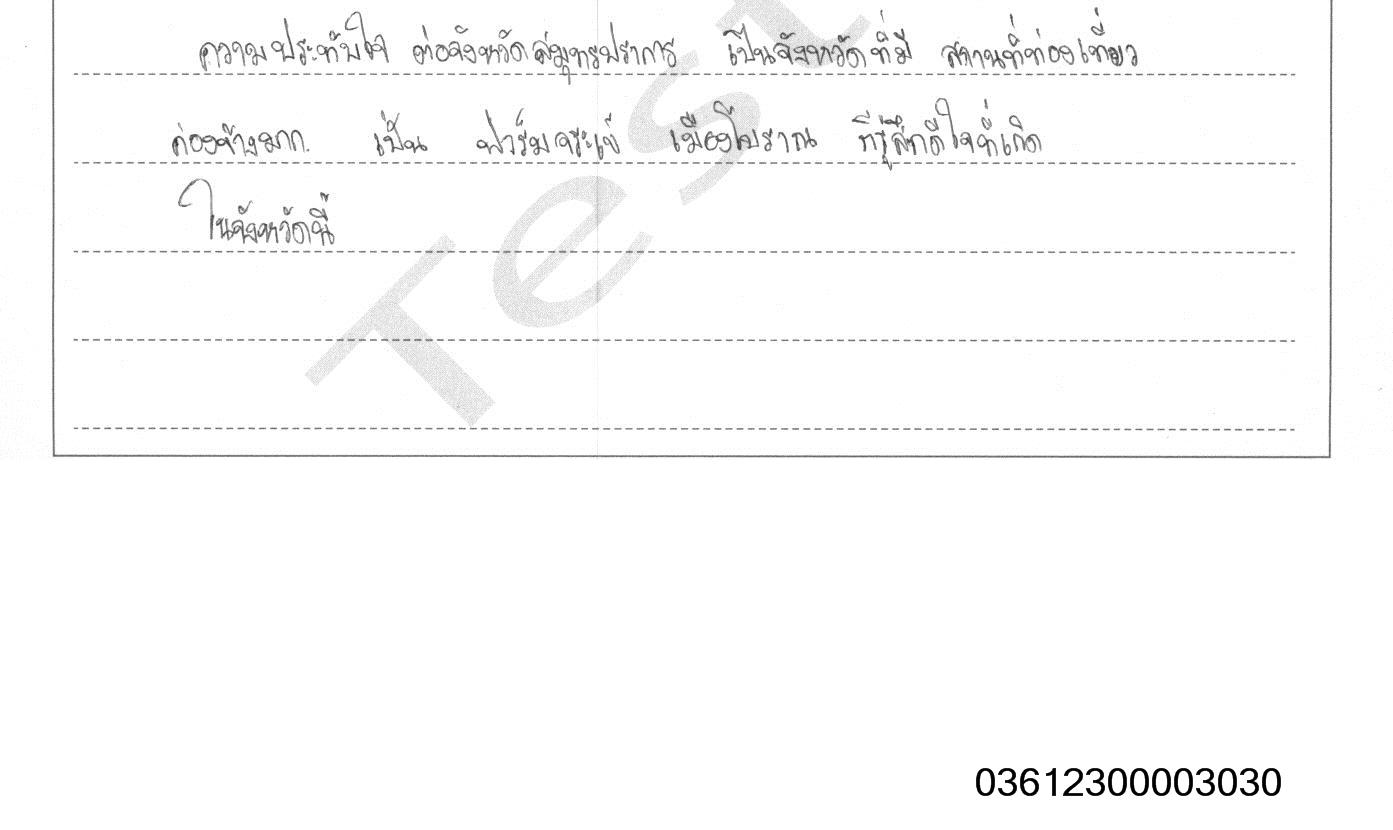 ความประทับใจ ต่อจังหวัดสมุทรปราการ เป็นจังหวัดที่มี สถานที่ท่องเที่ยว
ค่อนข้างมาก เป็น ฟาร์มจระเข้ เมืองโบราณ ที่รู้สึกดีใจที่เกิด
ในจังหวัดนี้
Test
03612300003030